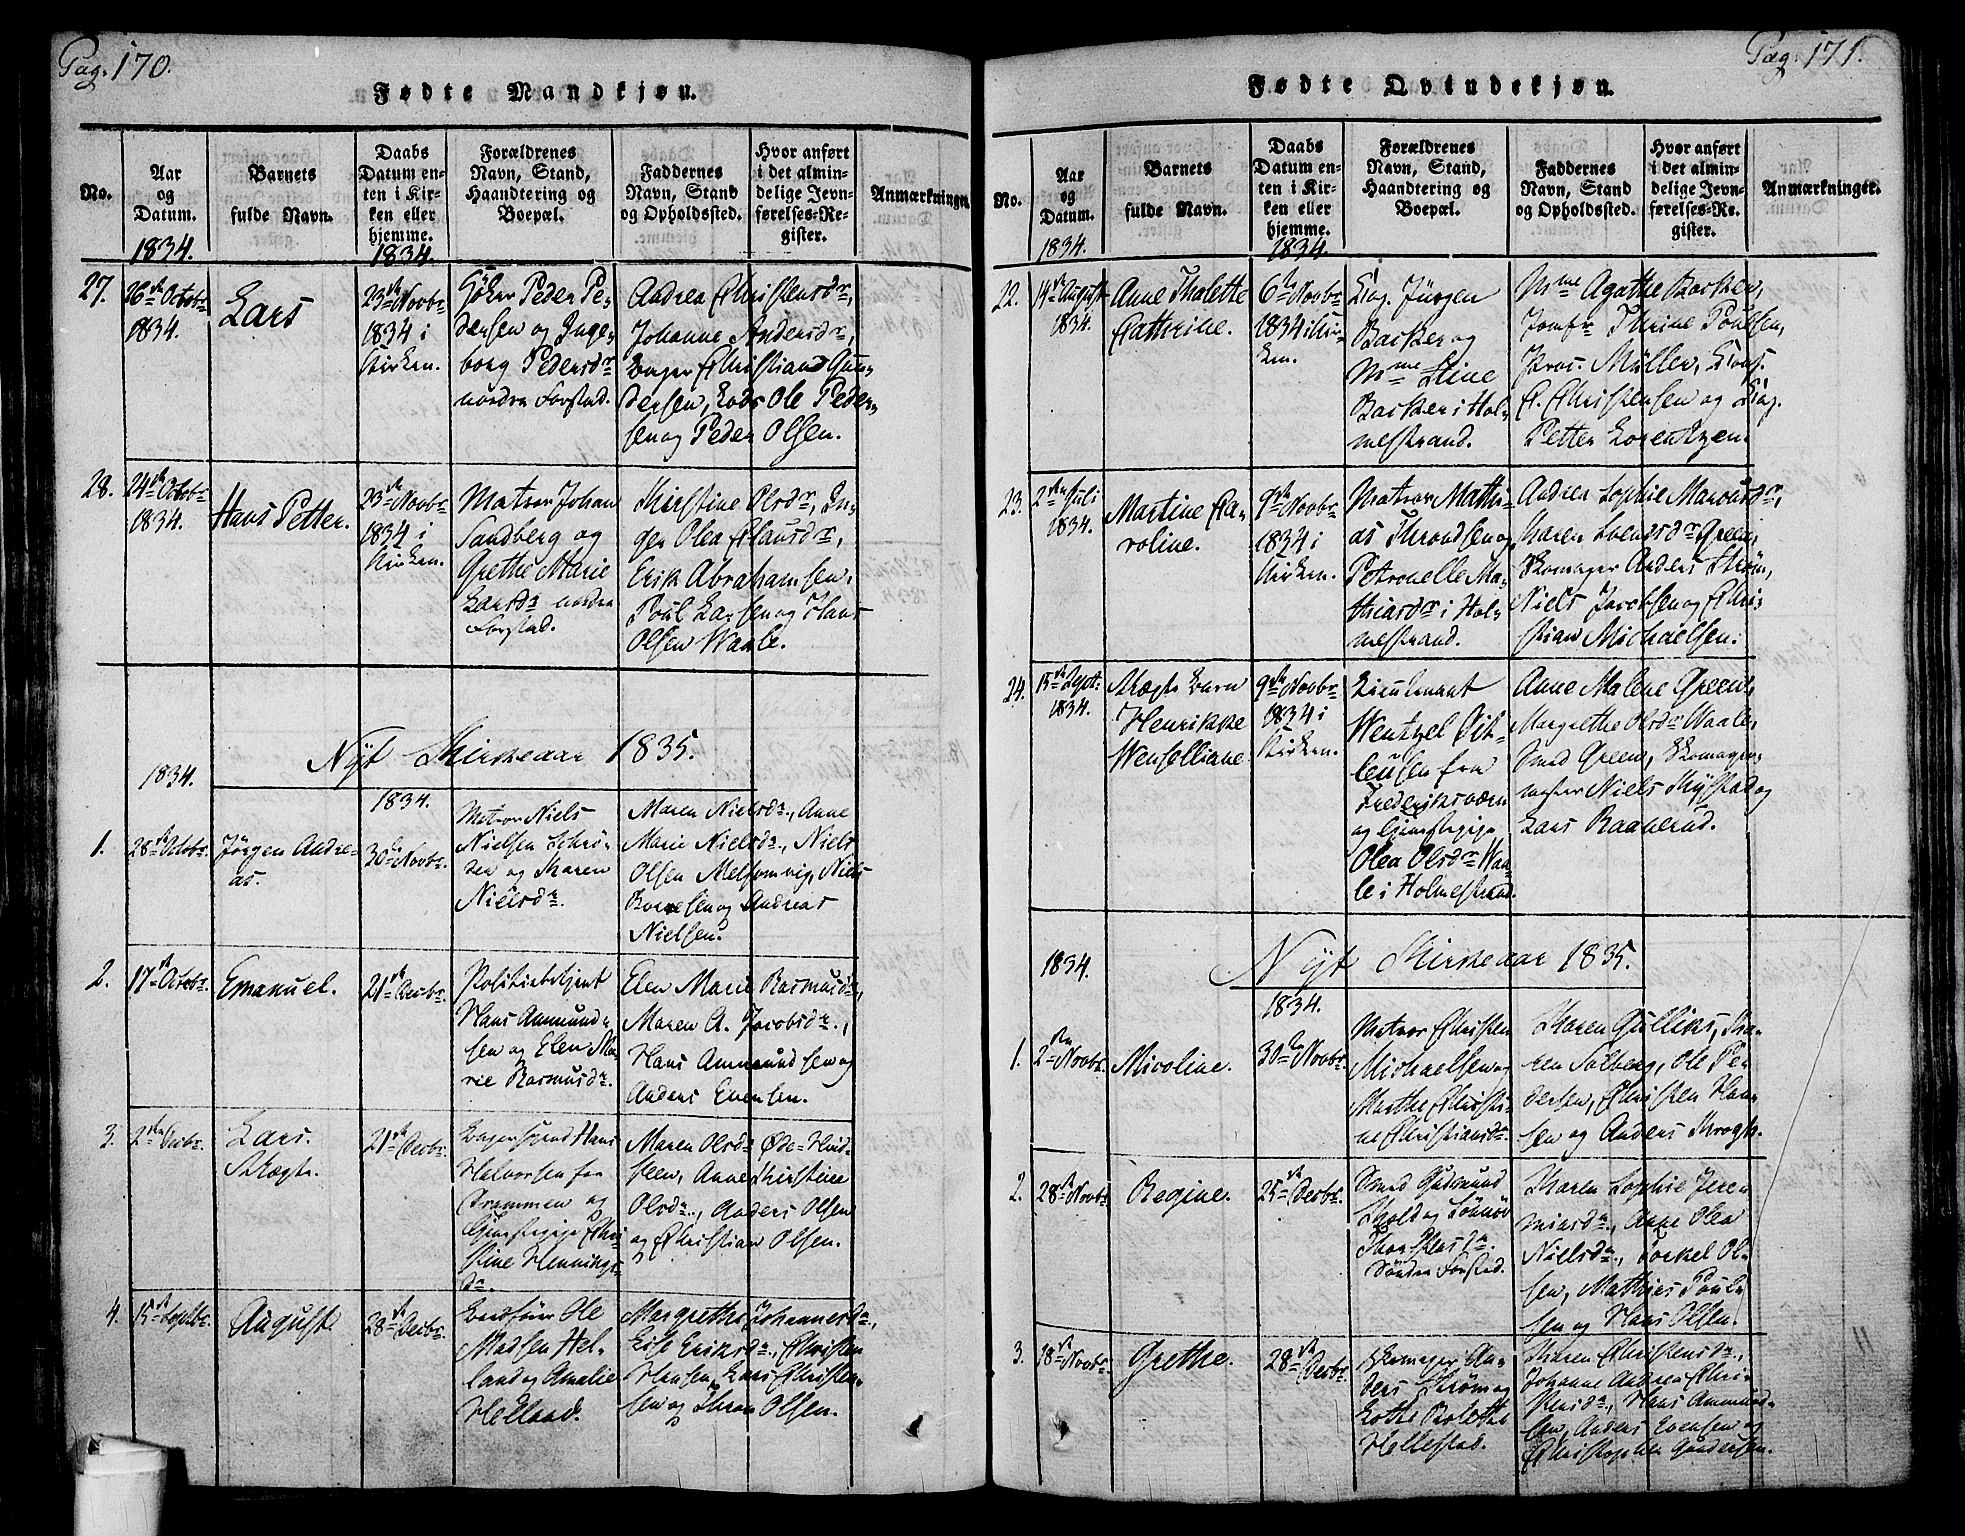 Pag. 170.
Fødte Mandkjøn.
No.
Aar og Datum.
Barnets fulde Navn.
Daabs Datum enten i Kirken eller hjemme.
Forældrenes Navn, Stand, Haandtering og Boepæl.
Faddernes Navn, Stand og Opholdssted.
Hvor anført i det almindelige Jevnførelses-Register.
Anmærkninger.
1834.
1834.
27.
26de Octobr
1834.
Lars
23de Novbr
1834 i
Kirken.
Peder Pe-
dersen og Inge-
borg Pedersdr
nordre Forstad.
Andrea Christensdr,
Johanne Andersdr,
Christian Gun-
dersen, Ole Peder-
sen og Peder Olsen.
28.
24de Octobr
1834.
Hans Petter.
23de Novbr
1834 i
Kirken.
Matros Johan
Sandberg og
Grethe Marie
Larsdr nordre
Forstad.
Kirstine Olsdr, In-
ger Olea Clausdr,
Erik Abrahamsen,
Poul Larsen og Hans
Olsen Waale.
Nyt Kirkeaar 1835.
1834.
1834.
1.
28de Octobr.
Jørgen Andre-
as.
30te Novbr.
Matros Niels
Nielsen Schrø-
der og Karen
Nielsdr.
Maren Nielsdr., Anne
Marie Nielsdr., Niels
Olsen Melsomvig, Niels
og Andreas
Nielsen.
2.
17de Octobr.
Emanuel.
21de Decbr.
Politiebetjent
Hans Ammund-
sen og Elen Ma-
rie Rasmusdr.
Elen Marie Rasmusdr.,
Maren A. Jacobsdr.,
Hans Ammundsen og
Anders Evensen.
3.
2den Decbr.
Lars.
Uægte.
21de Decbr.
Hans
Halvorsen fra
Drammen og
Chri-
stine Hennings-
dr.
Maren Olsdr Øde-Hvid-
steen, Anne Kirstine
Olsdr., Anders Olsen
og Christian Olsen.
4.
15de Septbr.
August.
28de Decbr.
Ole
Madsen Hel-
land og Amalie
Helland.
Margrethe Johannesdr.,
Else Eriksdr., Christen
Hansen, Lars Christen-
sen og Thron Olsen.
Pag. 171.
Fødte Qvindekjøn.
No.
Aar og Datum.
Barnets fulde Navn.
Daabs Datum enten i Kirken eller hjemme.
Forældrenes Navn, Stand, Haandtering og Boepæl.
Faddernes Navn, Stand og Opholdssted.
Hvor anført i det almindelige Jevnførelses-Re. gister.
Anmærkninger.
1834.
1834.
22.
14de August
1834.
Anne Thalette
Cathrine.
6te Novbr
1834 i Kir-
ken.
Jürgen
Backer og
Mme Stine
Backer i Hol-
mestrand.
Mme Agathe Backer,
Jomfr Thrine Poulsen,
Proc. Müller,
C. Christensen og
Petter Lorentzen.
23.
2den Juli
1834.
Martine Ca-
roline.
9de Novbr
1834 i
Kirken.
Matros Mathi-
as Throndsen og
Petronelle Ma-
thiasdr i Hol-
mestrand.
Andrea Sophie Marcusdr,
Karen Svendsdr Green,
Skomager Anders Strøm,
Niels Jacobsen og Chri-
stian Michaelsen.
24.
15de Septbr
1834.
Uægte Barn
Henrikke
Wenselliane
9de Novbr
1834 i
Kirken.
Lieutenant
Wentzel Dit-
leusen fra
Frederiksværn
og
Olea Olsdr Waa-
le i Holmestrand.
Anne Malene Green,
Margrethe Olsdr Waale,
Smed Green, Skomager-
mester Niels Kystad og
Lars Raanerud.
Nyt Kirkeaar 1835.
1834.
1834.
1.
2den Novbr.
Nicoline.
30te Novbr.
Matros Christen
Michaelsen og
Marthe Christi-
ne Christiansdr.
Karen Gulliks, Ka-
ren Solberg, Ole Pe-
dersen, Christen Han-
sen og Anders Krogh.
2.
28de Novbr.
Regine.
25de Decbr.
Smed Gudmund
Skold og Sønnøv
Thorstensdr.
Søndre Forstad.
Karen Sophie Jere-
miasdr., Anne Olea
Nielsdr., Torkel Ol-
sen, Mathias Poul-
sen og Hans Olsen.
3.
18de Novbr.
Grethe.
28de Decbr.
Skomager An-
ders Strøm og
Lothe Bolethe
Hellestad.
Karen Christensdr.,
Johanne Andrea Chri-
stensdr., Hans Ammund-
sen, Anders Evensen og
Christopher Gundersen.